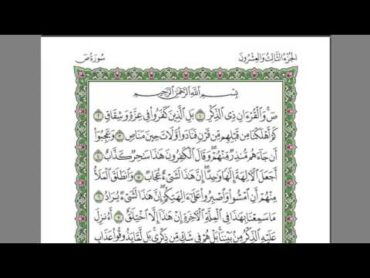 الجزء الثالث والعشرون سورة ص
بِسْمِ ٱللَّهِ ٱلرَّحْمَٰنِ ٱلرَّحِيمِ
صٓ وَٱلْقُرْءَانِ ذِى ٱلذِّكْرِ بَلِ ٱلَّذِينَ كَفَرُوا۟ فِى عِزَّةٍ وَشِقَاقٍ
كَمْ أَهْلَكْنَا مِن قَبْلِهِم مِّن قَرْنٍ فَنَادَوا۟ وَّلَاتَ حِينَ مَنَاصٍ وَعَجِبُوٓا۟
أَن جَآءَهُم مُّنذِرٌ مِّنْهُمْ وَقَالَ ٱلْكَٰفِرُونَ هَٰذَا سَٰحِرٌ كَذَّابٌ
أَجَعَلَ ٱلْءَالِهَةَ إِلَٰهًا وَٰحِدًا إِنَّ هَٰذَا لَشَىْءٌ عُجَابٌ وَٱنطَلَقَ ٱلْمَلَأُ
مِنْهُمْ أَنِ ٱمْشُوا۟ وَٱصْبِرُوا۟ عَلَىٰٓ ءَالِهَتِكُمْ إِنَّ هَٰذَا لَشَىْءٌ يُرَادُ
مَا سَمِعْنَا بِهَٰذَا فِى ٱلْمِلَّةِ ٱلْءَاخِرَةِ إِنْ هَٰذَآ إِلَّا ٱخْتِلَٰقٌ أَءُنزِلَ
عَلَيْهِ ٱلذِّكْرُ مِنۢ بَيْنِنَا بَلْ هُمْ فِى شَكٍّ مِّن ذِكْرِى بَل لَّمَّا يَذُوقُوا۟ عَذَابِ